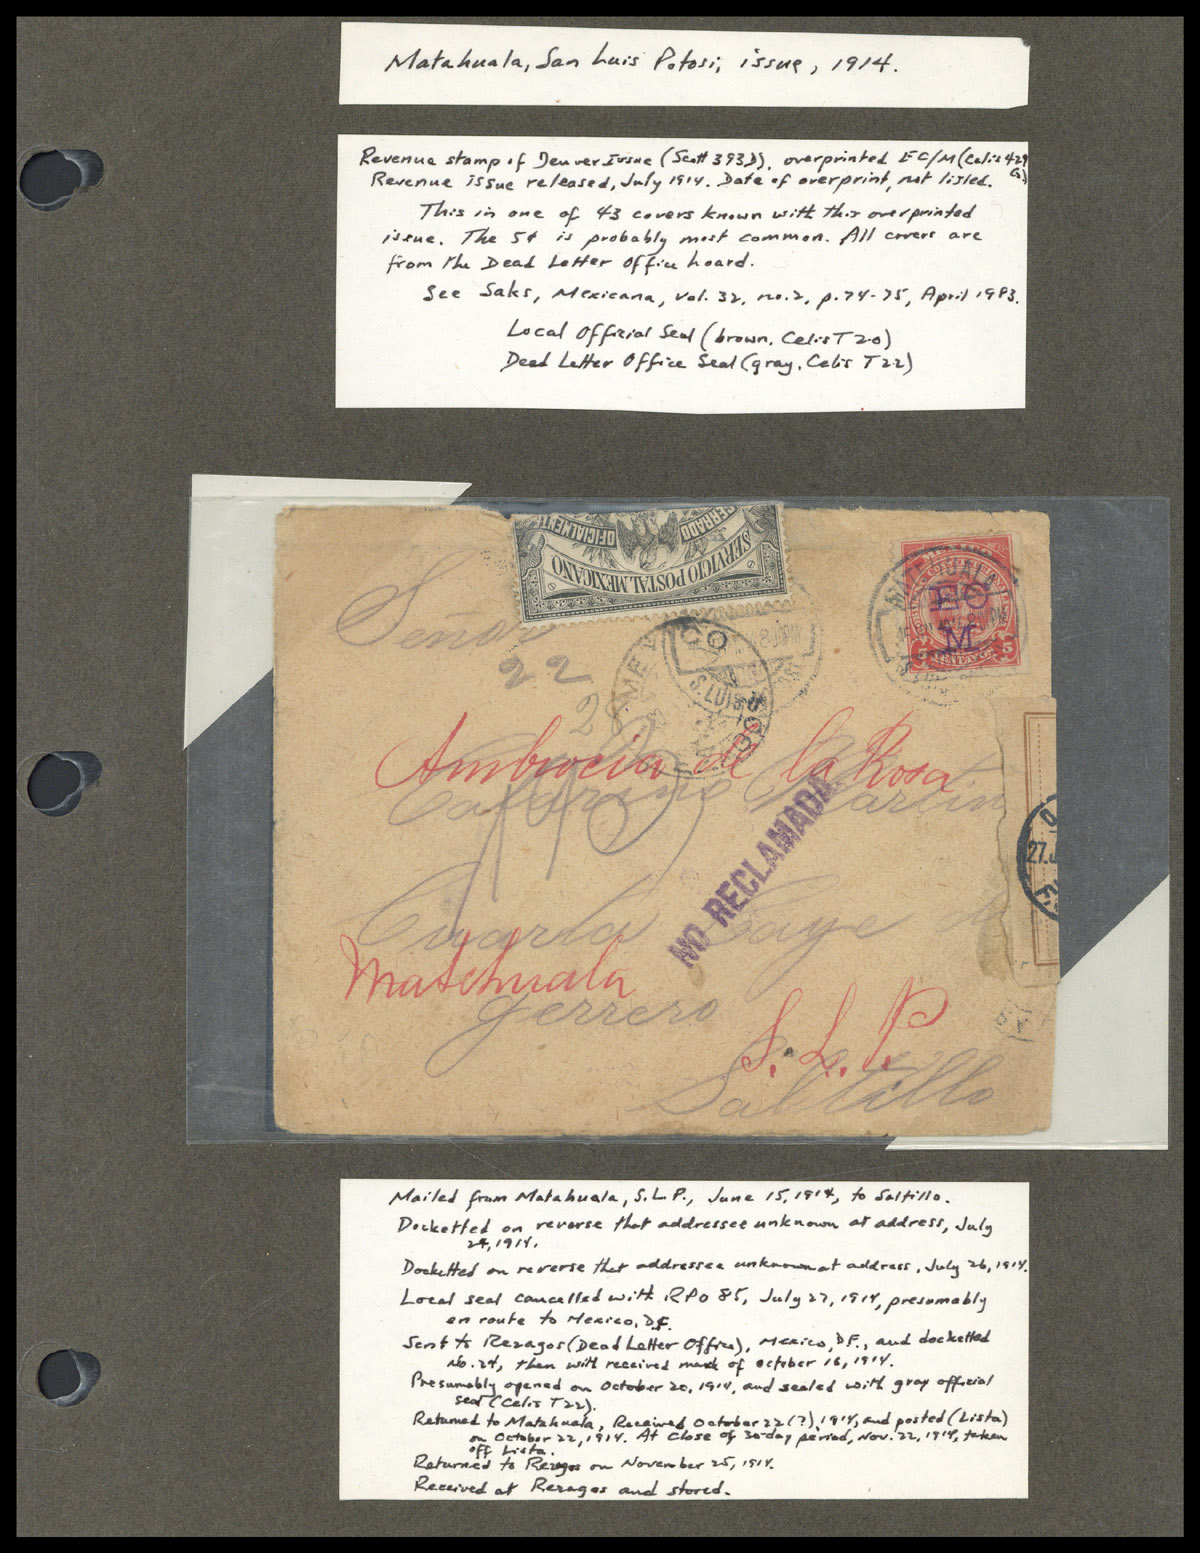 Matahuala, San Luis Potosi, issue, 1914.
Revenue stamp of Denver Issue (Scott 393D), overprinted EC/M (Celis 429
G)
Revenue issue released, July 1914. Date of overprint, not listed.
This is one of 43 covers known with this overprinted
issue. The 5¢ is probably most common. All covers are
from the Dead Letter Office hoard.
See Saks, Mexicana, vol. 32, no. 2, p. 74-75, April 1983.
Local Official Seal (brown, Celis T20)
Dead Letter Office Seal (gray, Celis T22)
CERRADO OFICIALMENTE
SERVICIO POSTAL MEXICANO
EC
M
5 5
Señor
22
2
MEX
S. LUIS
Ambrocia de la Rosa
Catarino Martin
NO RECLAMADA.
27.J
Cuarta Caye de
Matehuala
gerrero
S. L. P.
Saltillo
Mailed from Matahuala, S.L.P., June 15, 1914, to Saltillo.
Docketted on reverse that addressee unknown at address, July
24, 1914.
Docketted on reverse that addressee unknown at address, July 26, 1914.
Local seal cancelled with RPO 85, July 27, 1914, presumably
en route to Mexico, D.F.
Sent to Rezagos (Dead Letter Office), Mexico, D.F., and docketted
No. 24, then with received mark of October 16, 1914.
Presumably opened on October 20, 1914, and sealed with gray official
seal (Celis T22).
Returned to Matahuala, Received October 22(?), 1914, and posted (Lista)
on October 22, 1914. At close of 30-day period, Nov. 22, 1914, taken
off Lista.
Returned to Rezagos on November 25, 1914.
Received at Rezagos and stored.